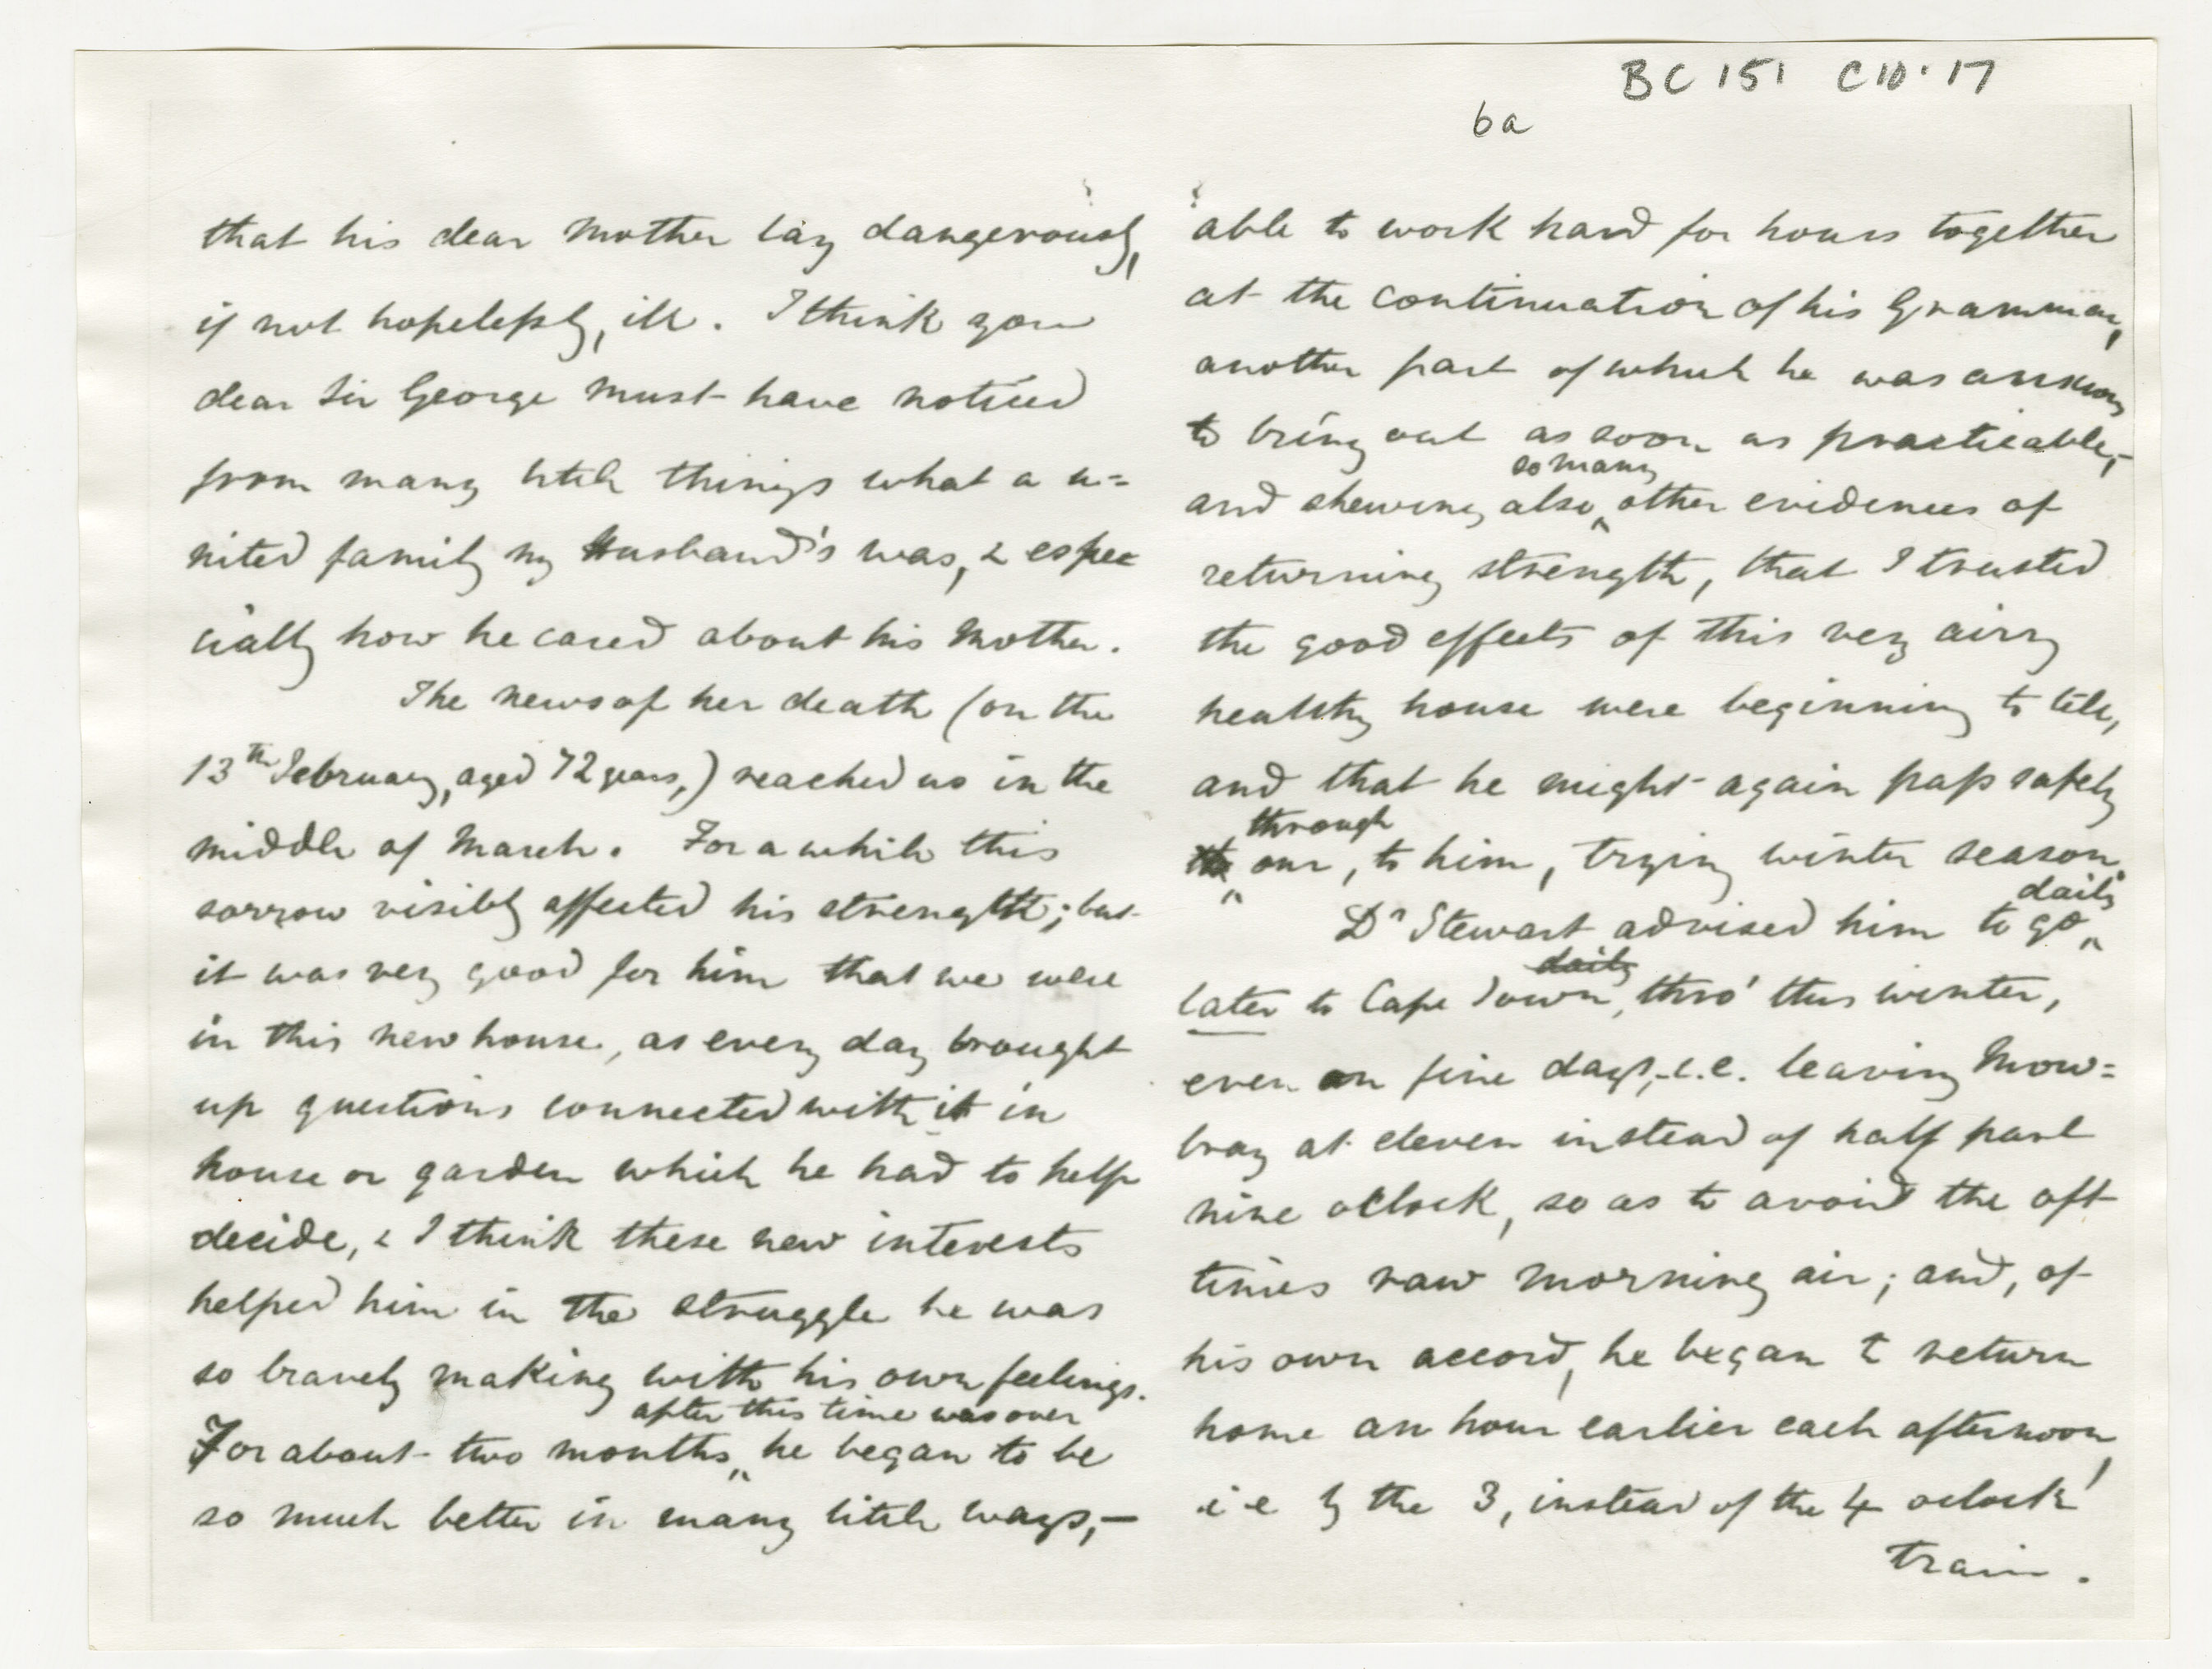 BC 151 C10.17
6a
that his dear Mother lay dangerously,
if not hopelessly, ill. I think you
dear Sir George must have noticed
from many little things what a u=
nited family my Husband's was, & espec
cially how he cared about his Mother.
The news of her death (on the
13th February, aged 72 years,) reached us in the
middle of March. For a while this
sorrow visibly affected his strength; but
it was very good for him that we were
in this new house, as every day brought
up questions connected with it in
house or garden which he had to help
decide, & I think these new interests
helped him in the struggle he was
so bravely making with his own feelings.
after this time was over
For about two months he began to be
so much better in many little ways,—
able to work hard for hours together
at the continuation of his Grammar,
another part of which he was anxious
to bring out as soon as practicable,—
so many
and shewing also other evidences of
returning strength, that I trusted
the good effects of this very airy
healthy house were beginning to tell,
and that he might again pass safely
through
our, to him, trying winter season.
daily
Dr Stewart advised him to go
daily
later to Cape Town, thro' this winter,
even on fine days,- i.e. leaving Mow=
bray at eleven instead of half past
nine o'clock, so as to avoid the oft
times raw morning air; and, of
his own accord, he began to return
home an hour earlier each afternoon,
i.e by the 3, instead of the 4 o'clock
train.